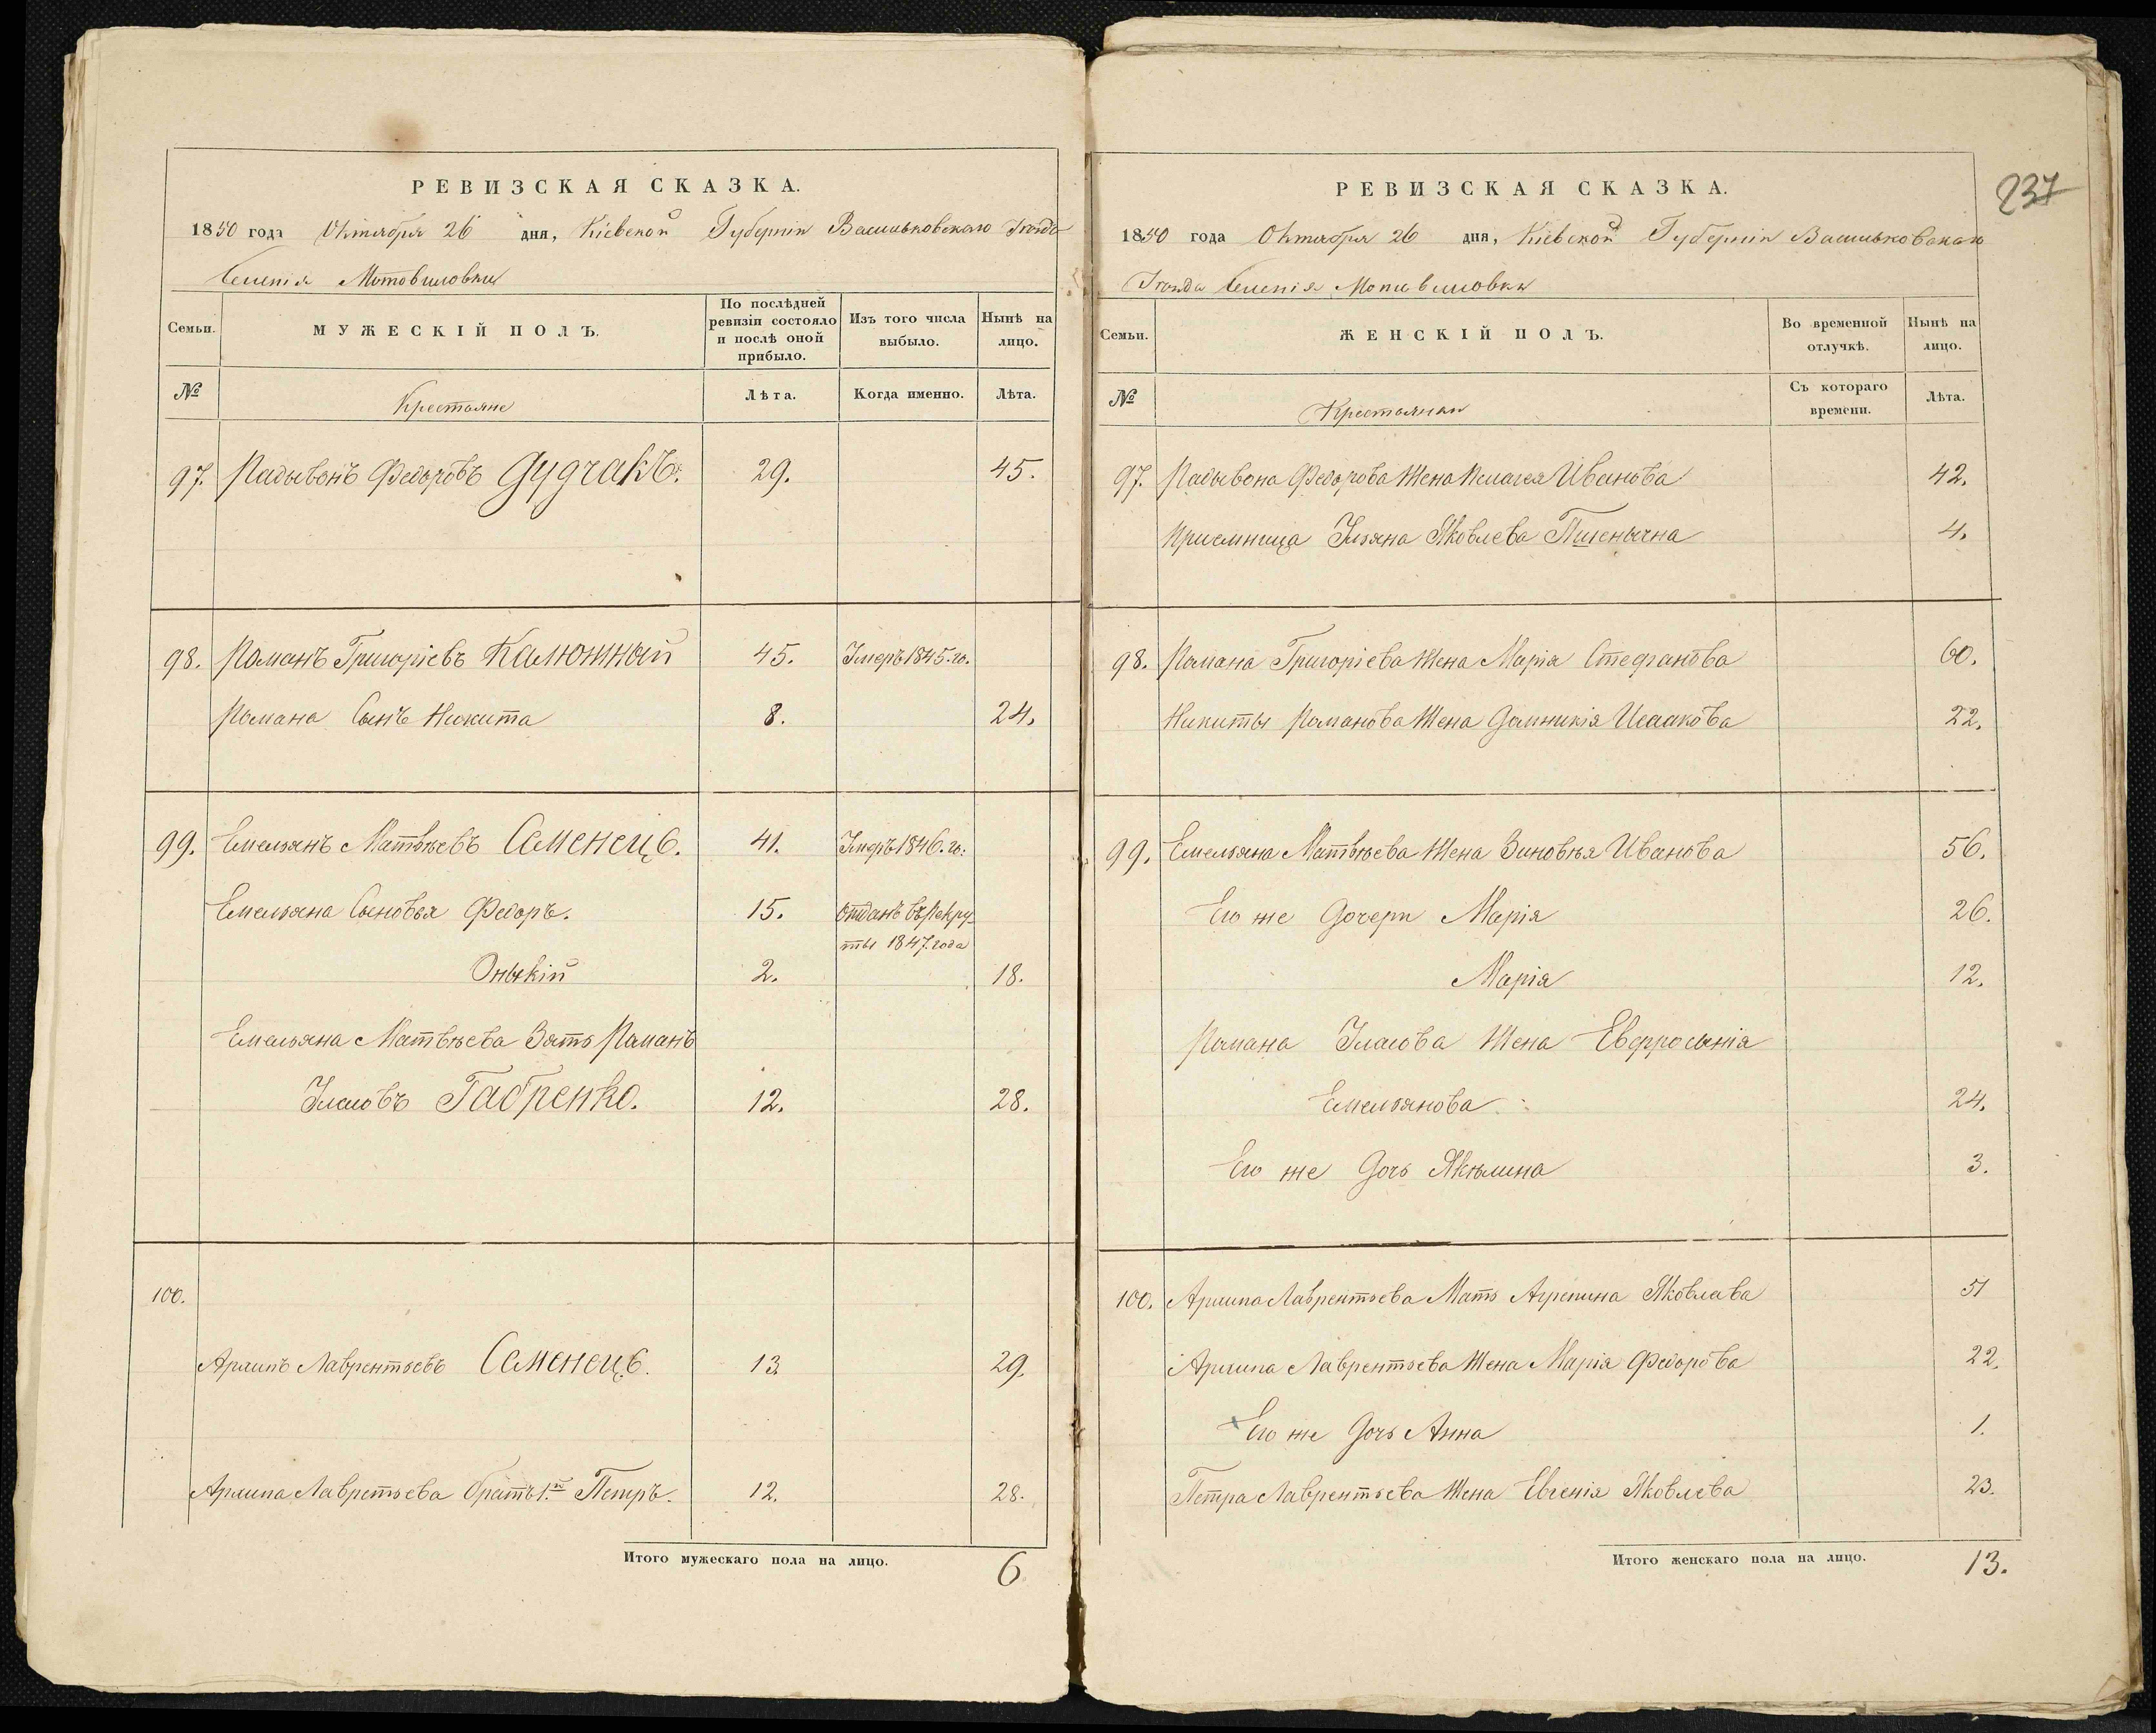 РЕВИЗСКАЯ СКАЗКА.
1850 года Октября 26 дня, Кіевской Губерніи Васильковскаго Уезда
Селенія Мотовиловки
Семьи.
МУЖЕСКІЙ ПОЛЪ.
По послѣдней ревизіи состояло и послѣ оной прибыло.
Изъ того числа выбыло.
Нынѣ на лицо.
№
Крестьяне
Лѣта.
Когда именно.
Лѣта.
97. Радывонъ Федоровъ Дудчакъ. 29. 45.
98. Романъ Григоріевъ Калюжный 45. Умеръ 1845. го.
Романа Сынъ Никита 8. 24.
99. Емельянъ Матвѣевъ Семенецъ. 41. Умеръ 1846. го.
Емельяна Сыновья Федоръ. 15. Отданъ въ Рекру-
ты 1847. года
Оныкій 2. 18.
Емельяна Матвѣева Зять Романъ
Уласовъ Габренко. 12. 28.
100.
Архипъ Лаврентьевъ Семенецъ. 13. 29.
Архипа Лавретьева братъ 1.й Петръ. 12. 28.
Итого мужескаго пола на лицо. 6
237
РЕВИЗСКАЯ СКАЗКА.
1850 года Октября 26 дня, Кіевской Губерніи Васильковскаго
Уезда Селенія Мотовиловки
Семьи.
ЖЕНСКІЙ ПОЛЪ.
Во временной отлучкѣ.
Нынѣ на лицо.
№
Крестьянки
Съ котораго времени.
Лѣта.
97. Радывона Федорова Жена Пелагея Иванова 42.
Приемница Ульяна Яковлева Пшенычна 4.
98. Романа Григоріева Жена Марія Стефанова 60.
Никиты Романова Жена Домникія Исаакова 22.
99. Емельяна Матвѣева Жена Зиновѣя Иванова 56.
Его же Дочери Марія 26.
Марія 12.
Романа Уласова Жена Евфросынія
Емельянова 24.
Его же Дочь Якѣлина 3.
100. Архипа Лаврентьева Мать Агрепина Яковлева 51
Архипа Лаврентьева Жена Марія Федорова 22.
Его же Дочь Анна 1.
Петра Лаврентьева Жена Евгенія Яковлева 23.
Итого женскаго пола на лицо. 13.